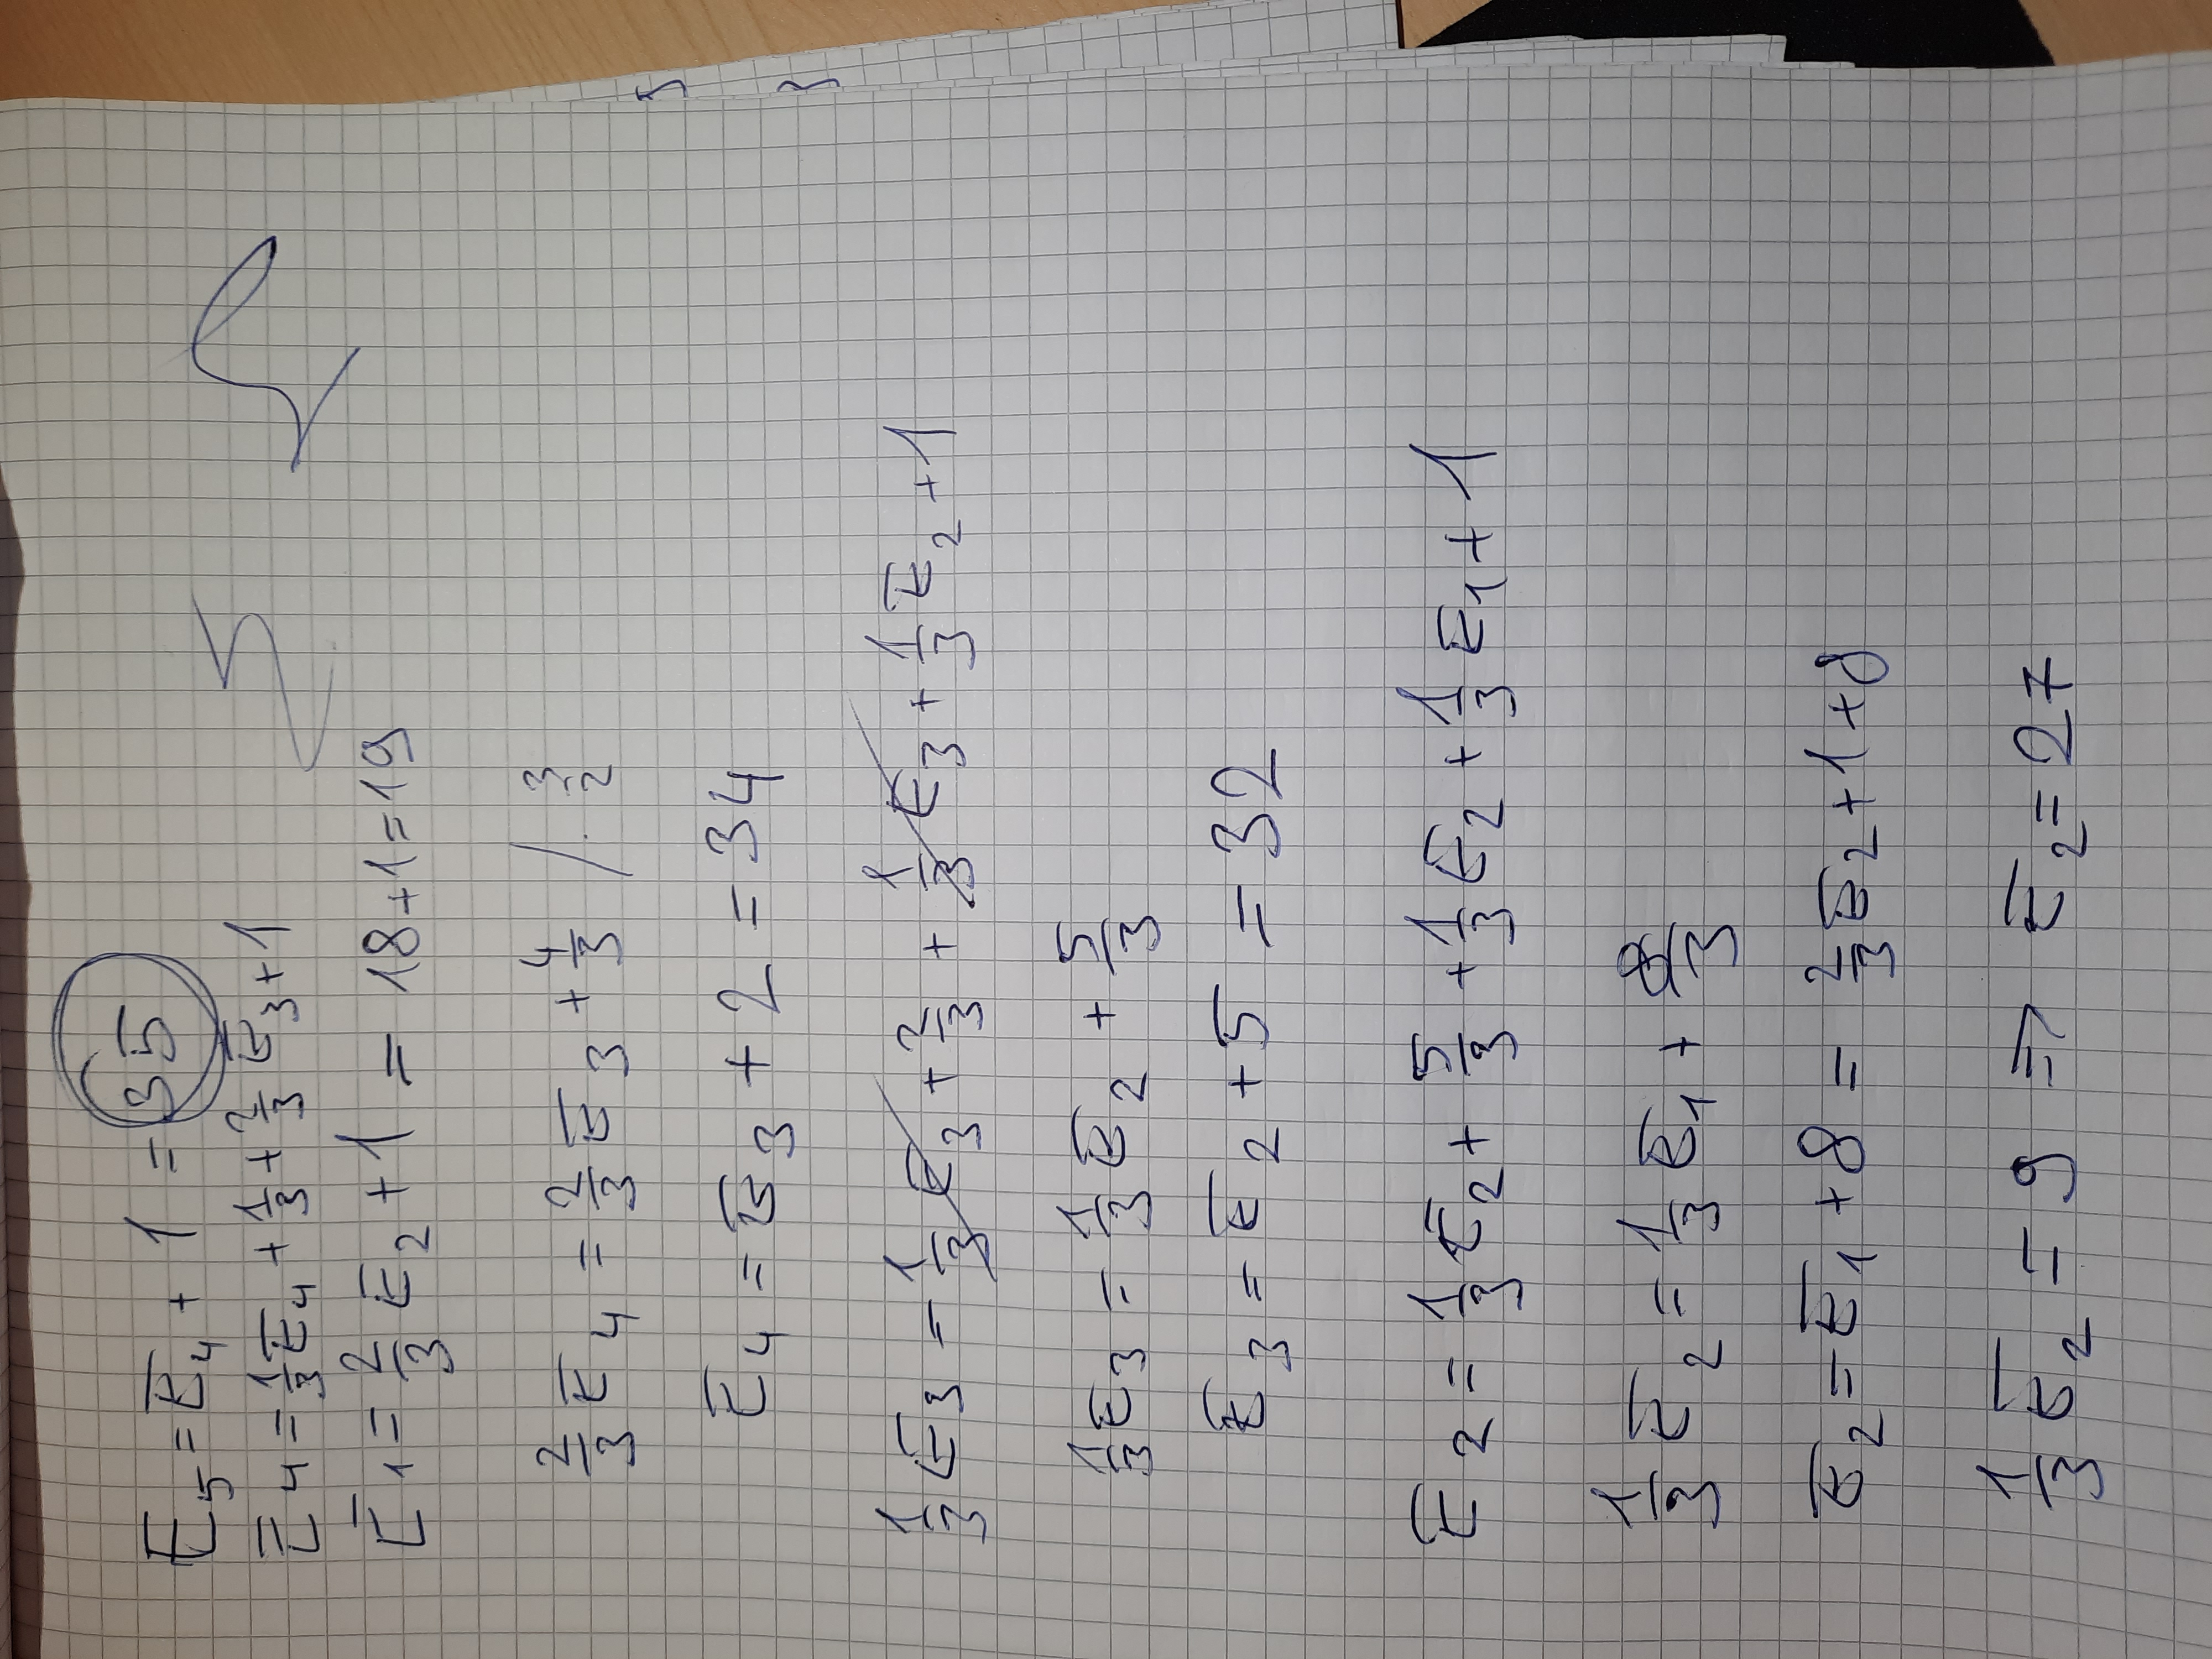 E5 = E4 + 1 = 35
E4 = 1/3 E4 + 1/3 + 2/3 E3 + 1
E1 = 2/3 E2 + 1 = 18 + 1 = 19
2/3 E4 = 2/3 E3 + 4/3 / · 3/2
E4 = E3 + 2 = 34
1/3 E3 = 1/3 E3 + 2/3 + 1/3 E3 + 1/3 E2 + 1
1/3 E3 = 1/3 E2 + 5/3
E3 = E2 + 5 = 32
E2 = 1/3 E2 + 5/3 + 1/3 E2 + 1/3 E1 + 1
1/3 E2 = 1/3 E1 + 8/3
E2 = E1 + 8 = 2/3 E2 + 1 + 8
1/3 E2 = 9 ⇒ E2 = 27